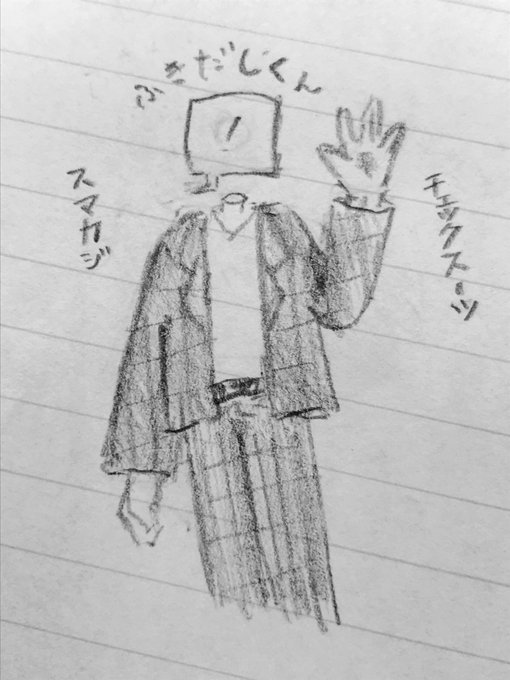 ふきだしくん
スマカジ
チェックスーツ